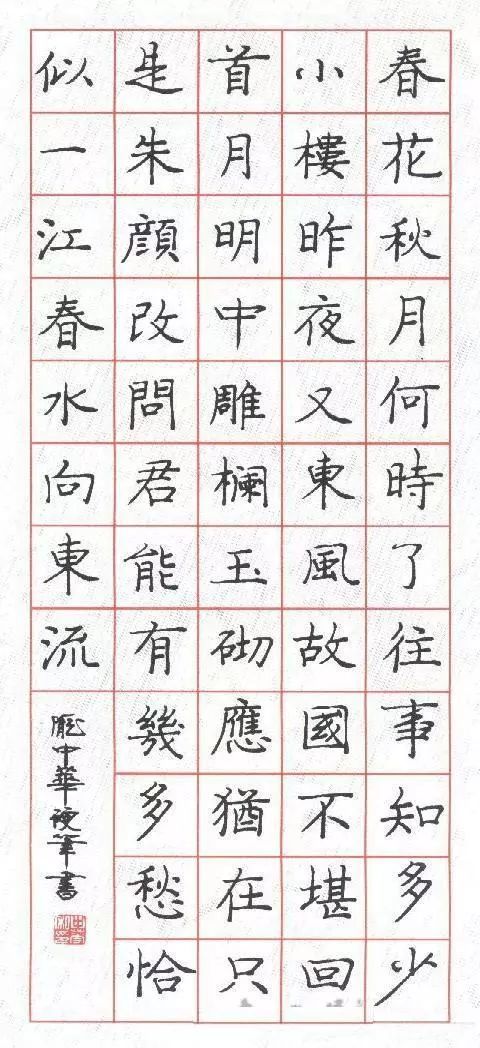 春花秋月何時了往事知多少
小樓昨夜又東風故國不堪回
首月明中雕欄玉砌應猶在只
是朱顔改問君能有幾多愁恰
似一江春水向東流
龐中華硬筆書